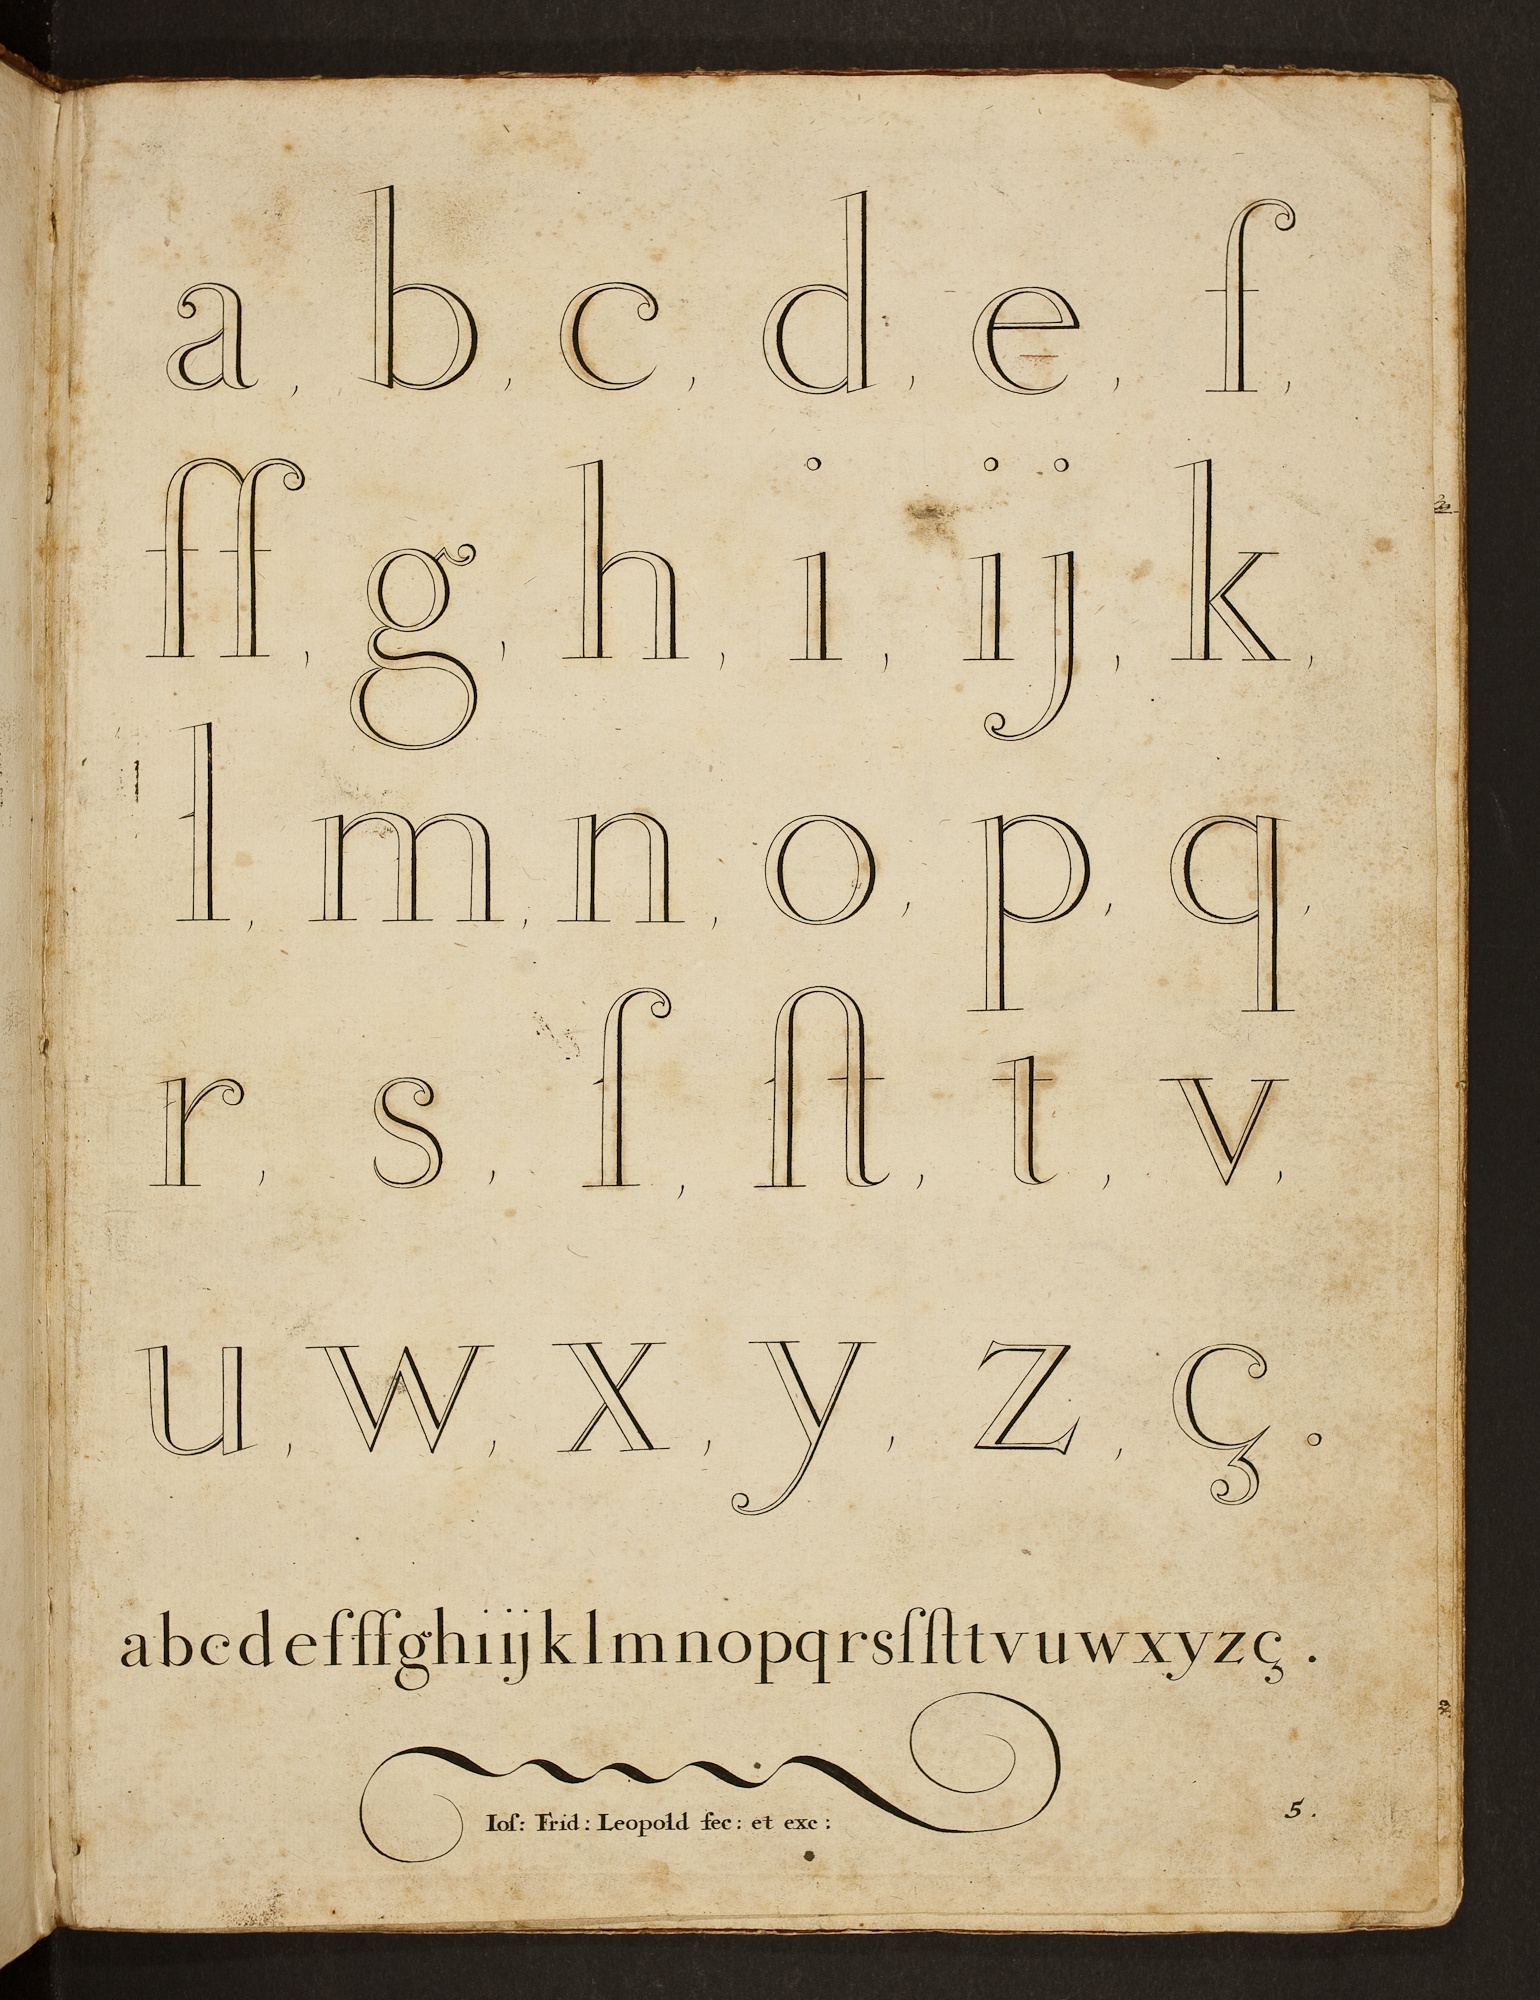 a, b, c, d, e, f,
ff, g, h, i, ij, k,
l, m, n, o, p, q,
r, s, ſ, ſt, t, v,
u, w, x, y, z, ç.
abcdefffghiijklmnopqrsſſttvuwxyzç.
Ioſ: Frid: Leopold fec: et exc:
5.